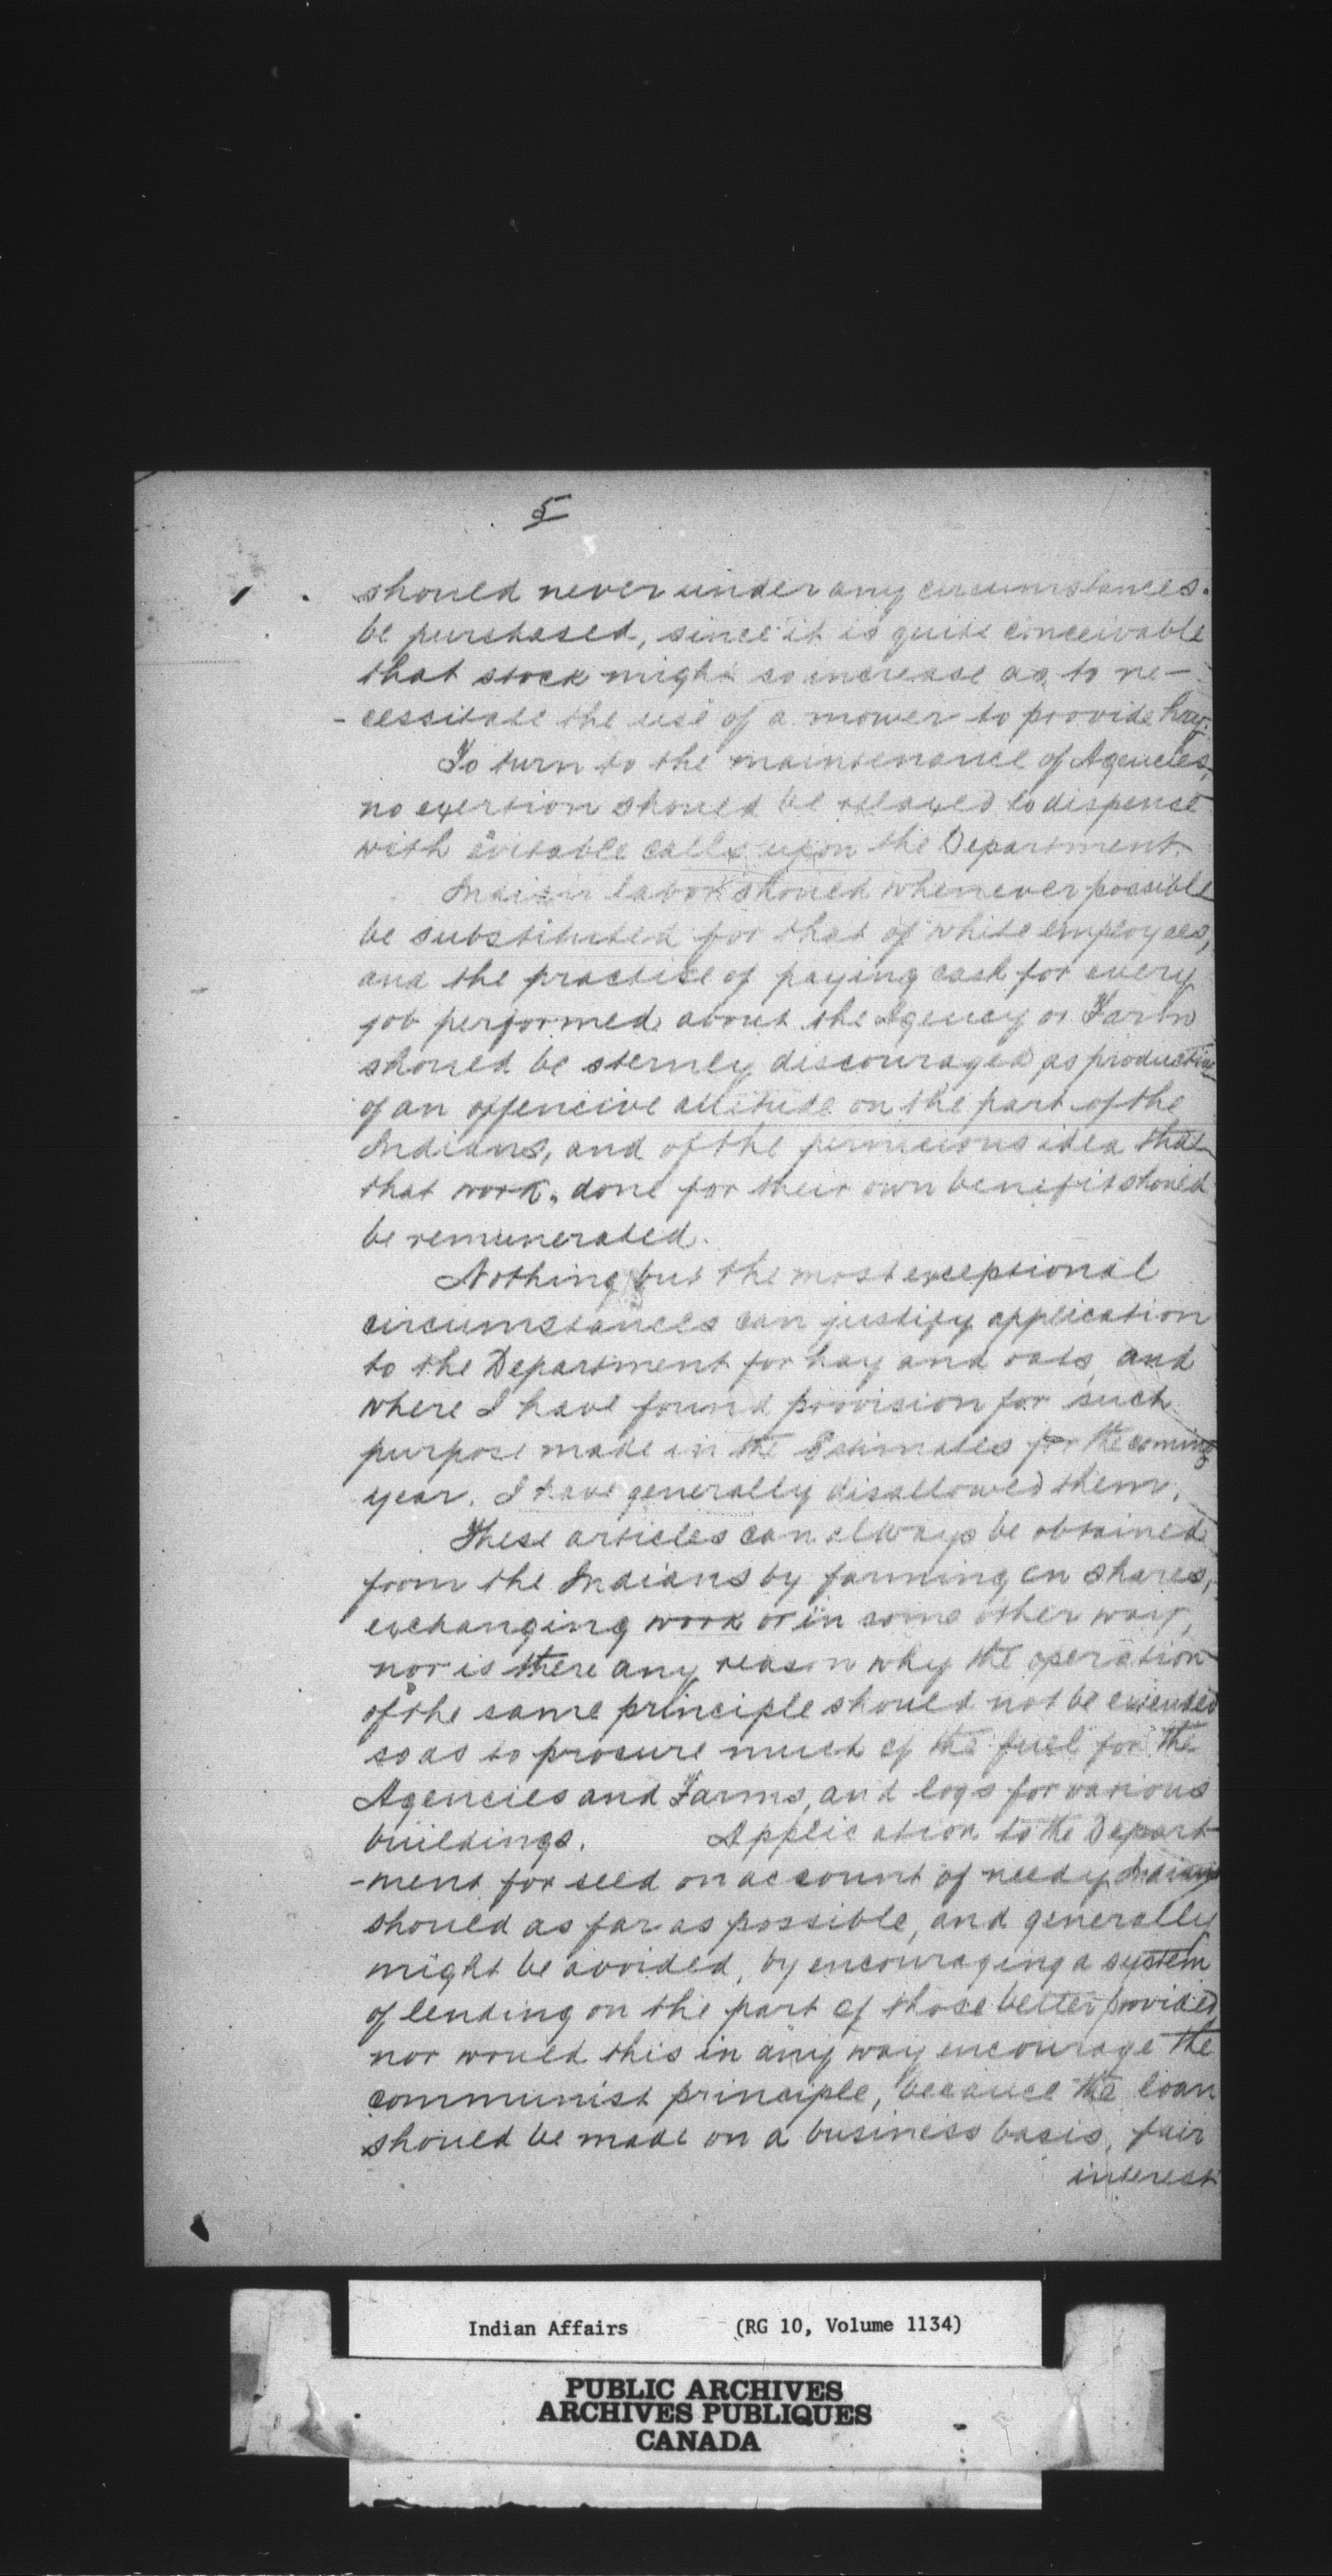 5
should never under any circumstances
be purchased, since it is quite conceivable
that stock might so increase as to ne-
-cessitate the use of a mower to provide hay.
To turn to the maintenance of Agencies,
no exertion should be relaxed to dispense
with evitable calls upon the Department.
Indian labor should whenever possible
be substituted for that of white employees,
and the practise of paying cash for every
job performed about the Agency or Farm
should be sternly discouraged, as productive
of an offencive attitude on the part of the
Indians, and of the pernicious idea that
that work, done for their own benefit should
be remunerated.
Nothing but the most exceptional
circumstances can justify application
to the Department for hay and oats, and
where I have found provision for such
purpose made in the Estimates for the coming
year, I have generally disallowed them.
These articles can always be obtained
from the Indians by farming on shares,
exchanging work or in some other way,
nor is there any reason why the operation
of the same principle should not be extended
so as to procure much of the fuel for the
Agencies and Farms, and logs for various
buildings. Application to the Depart-
-ment for seed on account of needy Indians
should as far as possible, and generally
might be avoided, by encouraging a system
of lending on the part of those better provided
nor would this in any way encourage the
communist principle, because the loan
should be made on a business basis, fair
interest
Indian Affairs (RG 10, Volume 1134)
PUBLIC ARCHIVES
ARCHIVES PUBLIQUES
CANADA